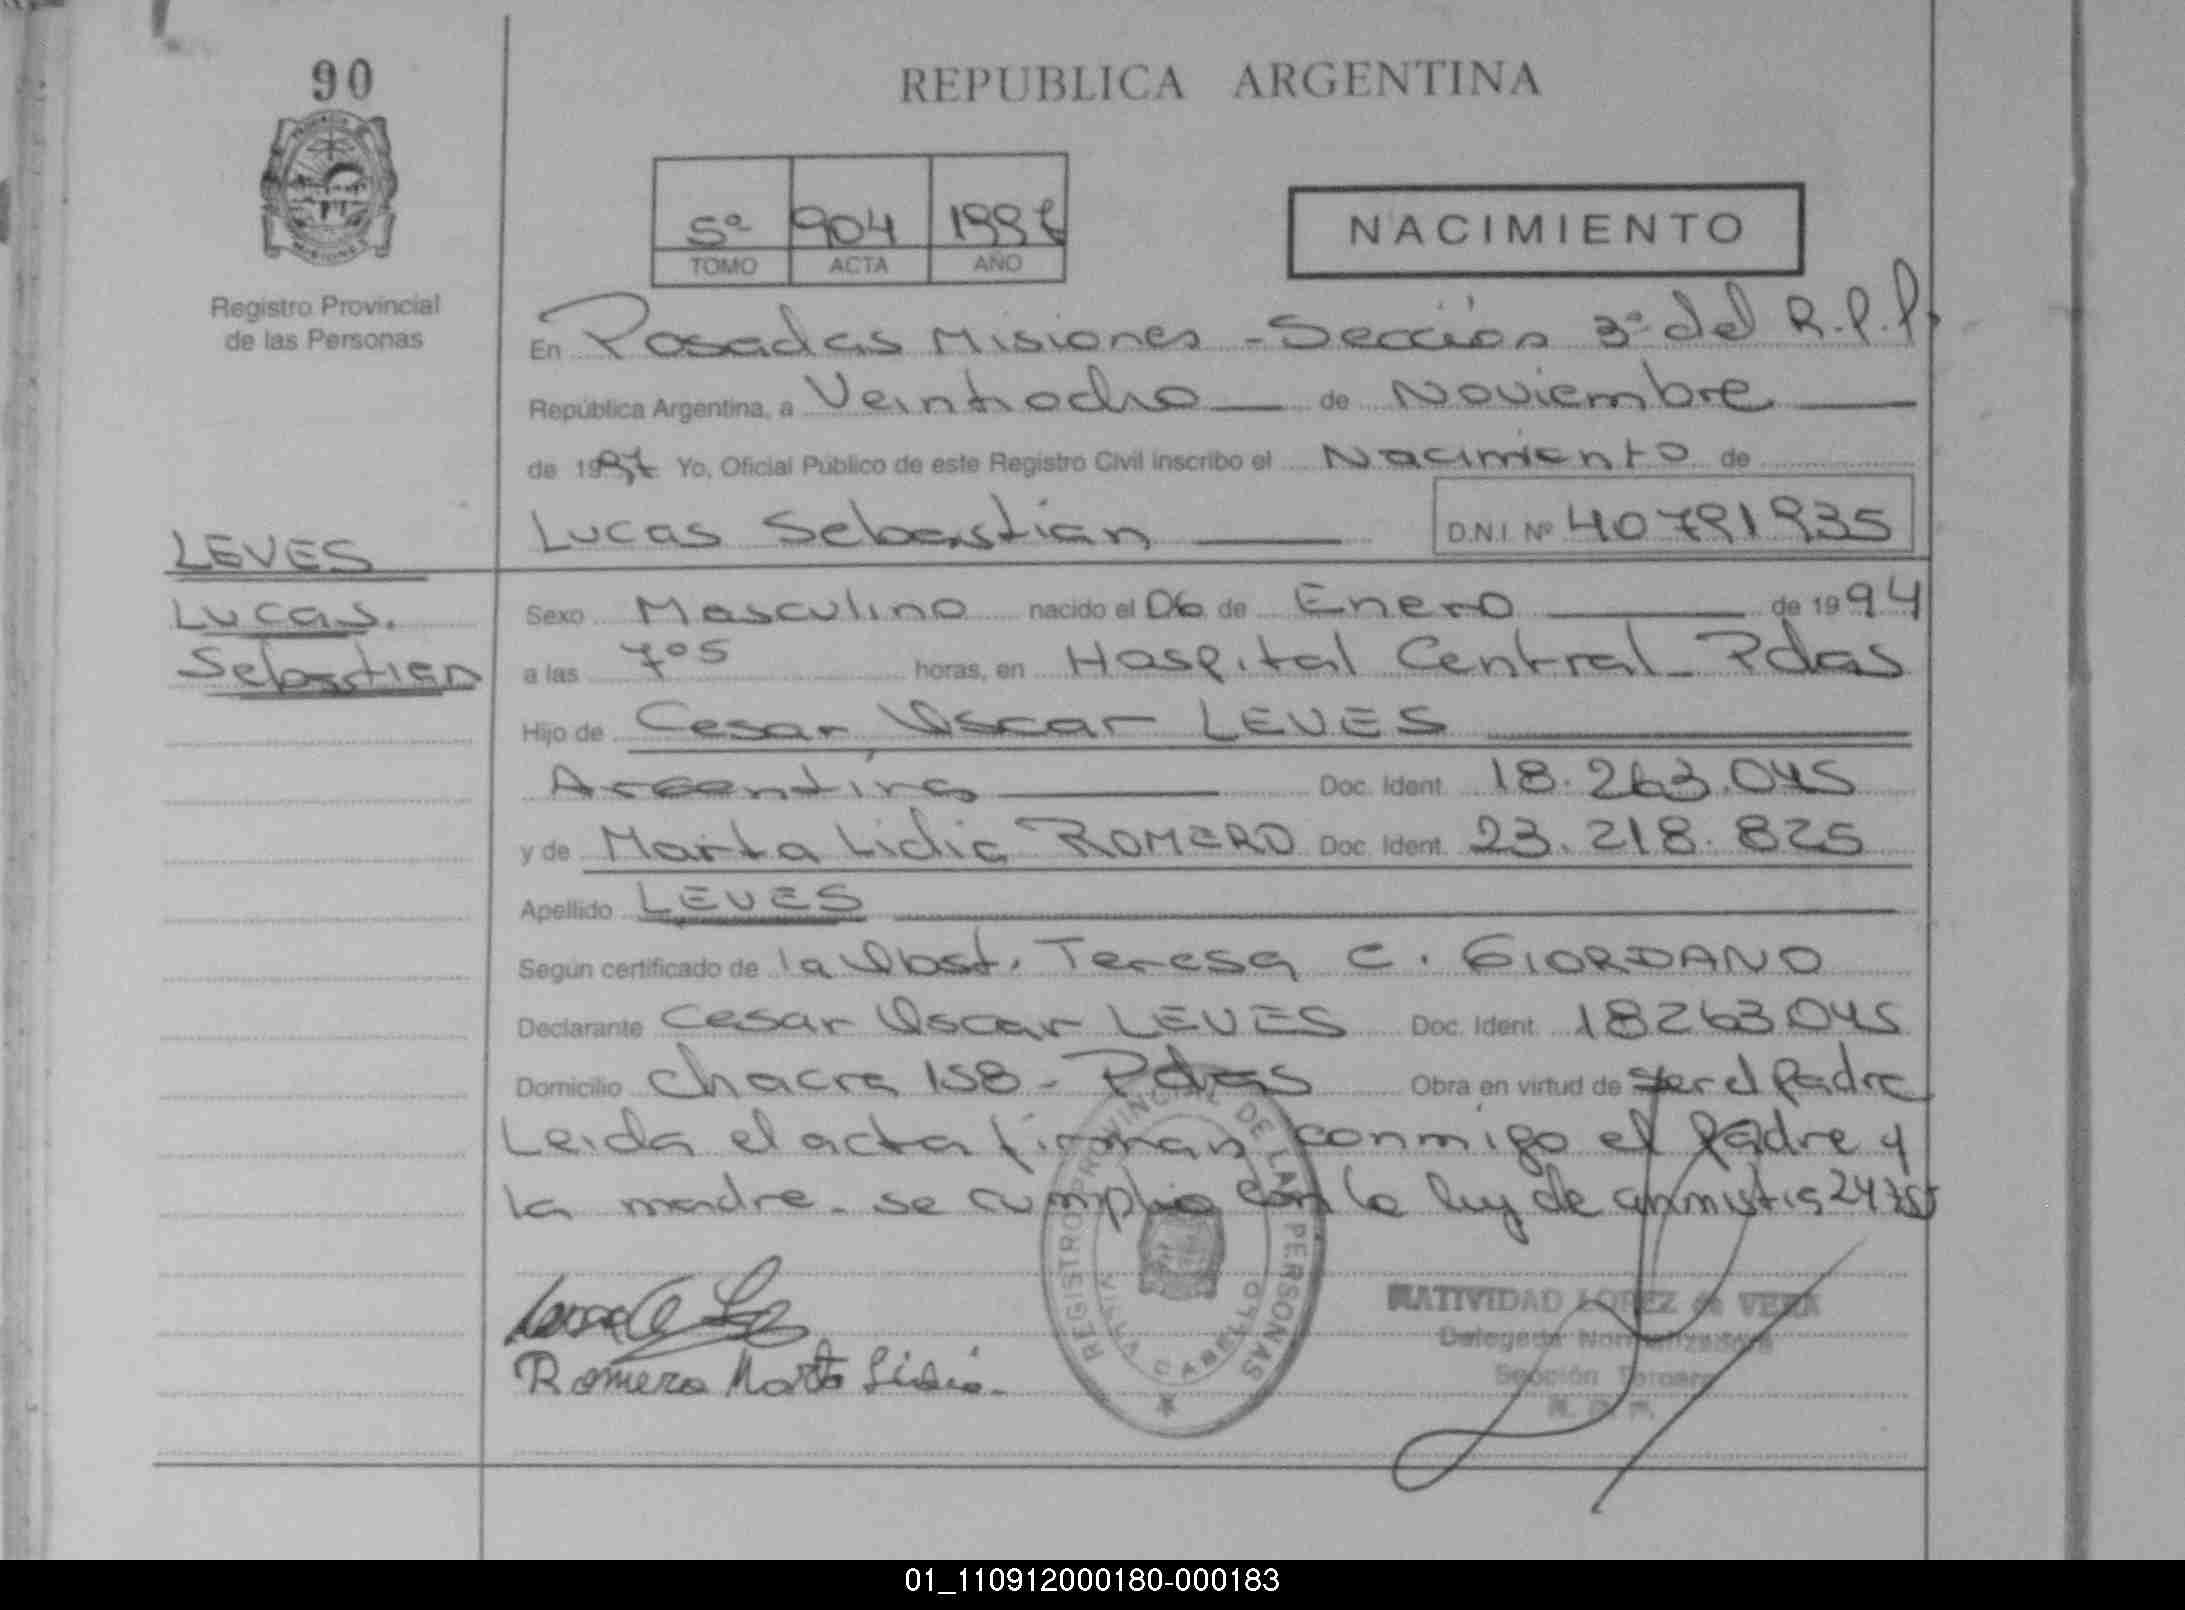 90
REPUBLICA ARGENTINA
5º 904 1997
TOMO ACTA AÑO
NACIMIENTO
Registro Provincial
de las Personas
En Posadas Misiones - Sección 3ª del R.P.P.
República Argentina, a Veintiocho de Noviembre
de 1997 Yo, Oficial Público de este Registro Civil inscribo el Nacimiento de
Lucas Sebastián D.N.I. Nº 40791935
LEVES
Lucas
Sebastian
Sexo Masculino nacido el 06 de Enero de 1994
a las 7º5 horas, en Hospital Central - Pdas
Hijo de Cesar Oscar LEVES
Argentina Doc. Ident. 18.263.045
y de Marta Lidia ROMERO Doc. Ident. 23.218.825
Apellido LEVES
Según certificado de la Obst. Teresa C. GIORDANO
Declarante Cesar Oscar LEVES Doc. Ident. 18263045
Domicilio Chacra 158 - Pdas Obra en virtud de ser el Padre
Leida el acta firman conmigo el Padre y
la madre - se cumplio con la ley de amnistia 24755
REGISTRO PROVINCIAL DE LAS PERSONAS
VILLA CABELLO
NATIVIDAD LOPEZ de VERA
Delegada Normalizadora
Sección Tercera
R. P. P.
Romero Marta Lidia
01_110912000180-000183